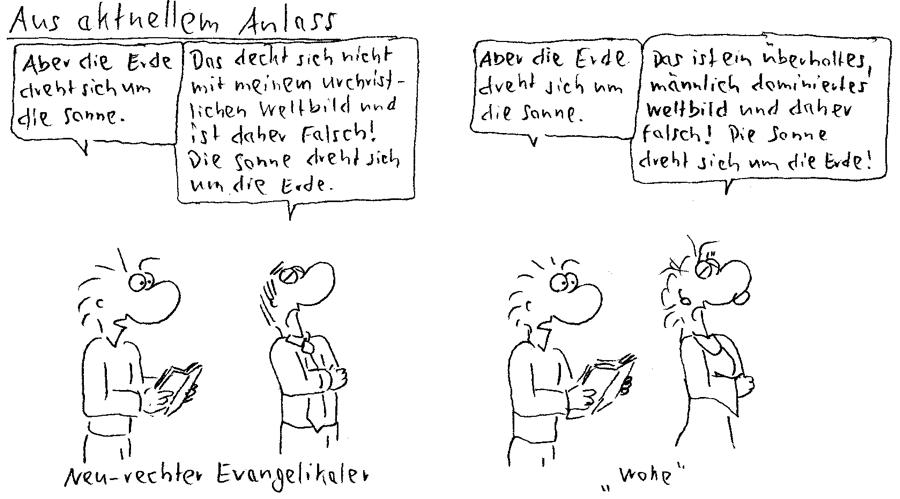 Aus aktuellem Anlass
Aber die Erde
dreht sich um
die Sonne.
Das deckt sich nicht
mit meinem urchrist-
lichen Weltbild und
ist daher Falsch!
Die Sonne dreht sich
um die Erde.
Aber die Erde
dreht sich um
die Sonne.
Das ist ein überholtes,
männlich dominiertes
Weltbild und daher
falsch! Die Sonne
dreht sich um die Erde!
Neu-rechter Evangelikaler
„Woke"